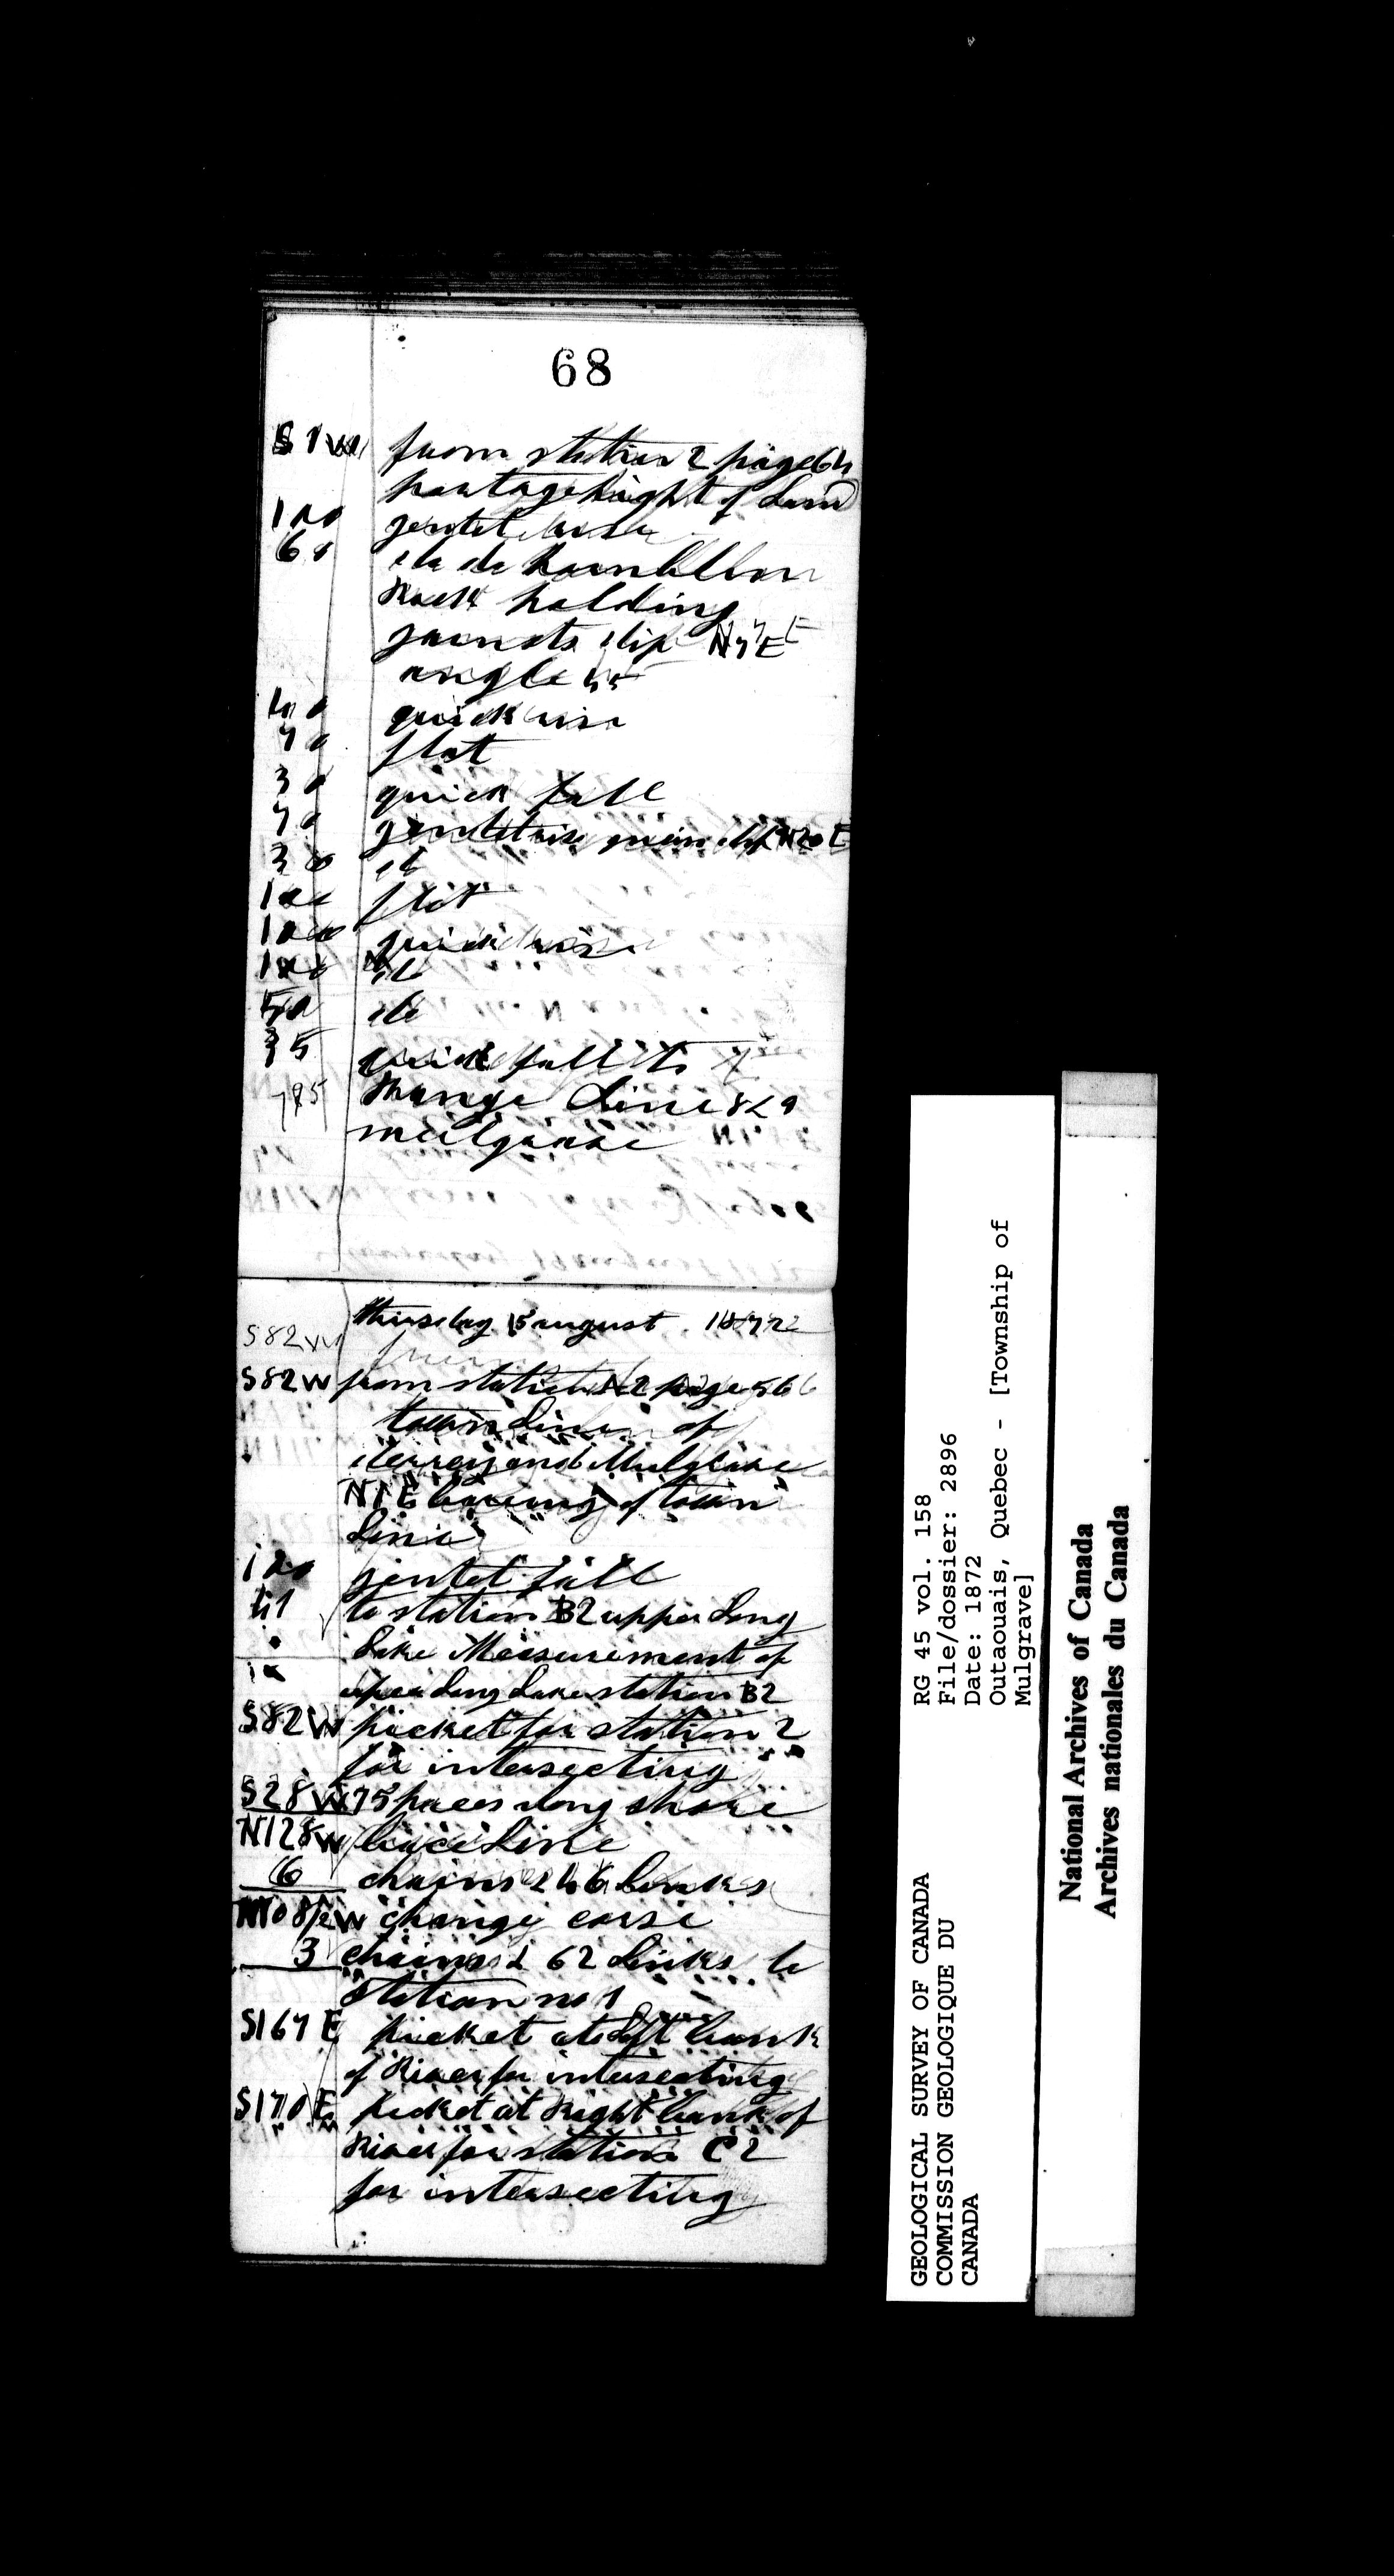 68
S 1 W from station 2 page 64
portage hight of Land
100 gentel rise
60 do do hornblbon
Rock holding
garnets dip N 7 E
angle 45
40 quick rise
70 flat
30 quick fall
70 gentel rise dip N20E
30 do
100 flat
100 quick rise
100 do
50 do
35 quick fall to
785 Range Line 8 & 9
mulgrave
thursday 15 august 1872
S82W
S82W from station 2 page 56
town Line of
derrey and Mulgrave
N1E bearing of town
Line
120 gentel fall
41 to station B2 upper Long
Lake Measurement of
upper Long Lake station B2
S82W picket for station 2
for intersecting
S28W 75 paces along shore
N128W bace Line
6 chains & 46 Links
N108½W change corse
3 chains & 62 Links to
station no 1
S167E picket at Left bank
of River for intersecting
S170E picket at Right bank of
River for station C2
for intersecting
GEOLOGICAL SURVEY OF CANADA
COMMISSION GEOLOGIQUE DU
CANADA
RG 45 vol. 158
File/dossier: 2896
Date: 1872
Outaouais, Quebec - [Township of
Mulgrave]
National Archives of Canada
Archives nationales du Canada